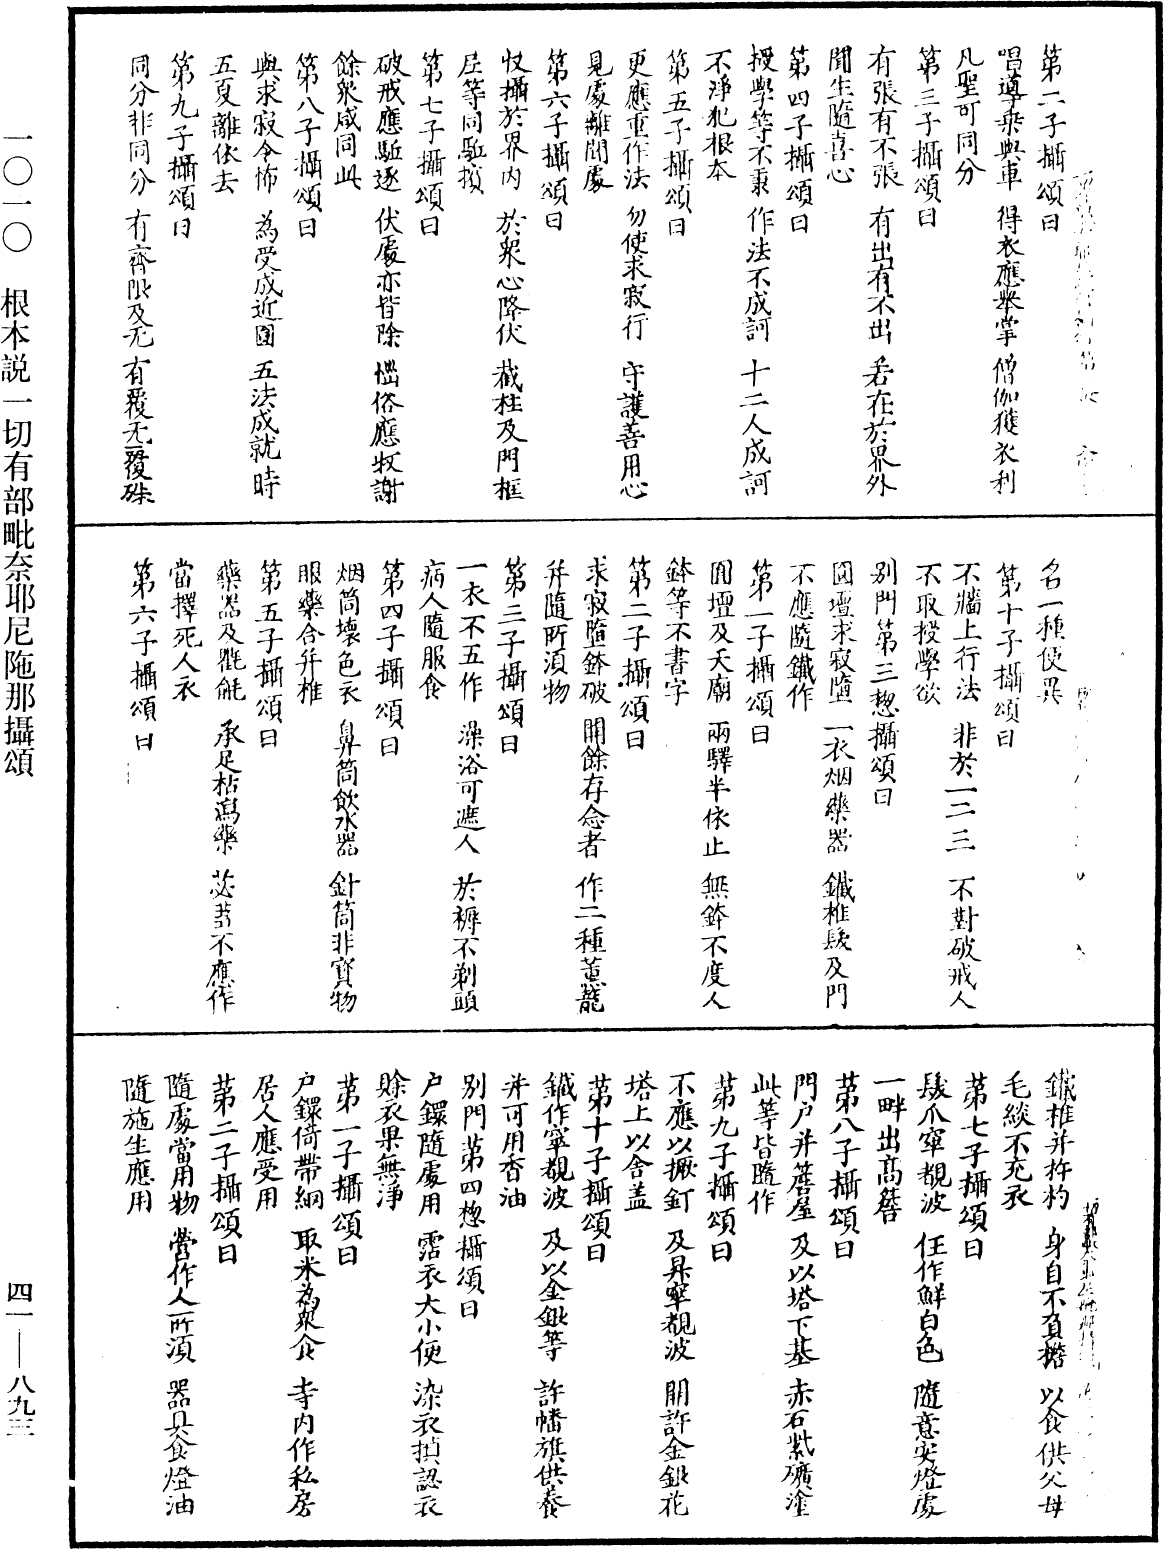 第二子攝頌曰
唱導乘輿車　得衣應舉掌　僧伽獲衣利
凡聖可同分
第三子攝頌曰
有張有不張　有出有不出　若在於界外
聞生隨喜心
第四子攝頌曰
授學等不秉　作法不成訶　十二人成訶
不淨犯根本
第五子攝頌曰
更應重作法　勿使求寂行　守護善用心
見處離聞處
第六子攝頌曰
收攝於界內　於衆心降伏　截柱及門框
屈等同驅擯
第七子攝頌曰
破戒應驅逐　伏處亦皆除　惱俗應收謝
餘衆咸同此
第八子攝頌曰
與求寂令怖　為受成近圓　五法成就時
五夏離依去
第九子攝頌曰
同分非同分　有齊限及无　有覆无覆殊
名一種便異
第十子攝頌曰
不牆上行法　非於一二三　不對破戒人
不取授學欲
别門第三惣攝頌曰
圓壇求寂墮　一衣烟藥器　鐵椎髮及門
不應隨鐵作
第一子攝頌曰
圓壇及天廟　兩驛半依止　無鉢不度人
鉢等不書字
第二子攝頌曰
求寂墮鉢破　開餘存念者　作二種薰籠
并隨所須物
第三子攝頌曰
一衣不五作　澡浴可遮人　於褥不剃頭
病人隨服食
第四子攝頌曰
烟筒壞色衣　鼻筒飲水器　針筒非寶物
服藥合并椎
第五子攝頌曰
藥器及氍毹　承足枯瀉藥　苾芻不應作
當擇死人衣
第六子攝頌曰
鐵椎并杵杓　身自不負擔　以食供父母
毛緂不充衣
第七子攝頌曰
髮爪窣覩波　任作鮮白色　隨意安燈處
一畔出高簷
第八子攝頌曰
門户并簷屋　及以塔下基　赤石紫礦塗
此等皆隨作
第九子攝頌曰
不應以橛釘　及昇窣覩波　開許金銀花
塔上以舍盖
第十子攝頌曰
鐵作窣覩波　及以金銀等　許幡旗供養
并可用香油
别門第四惣攝頌曰
户鐶隨處用　霑衣大小便　染衣損認衣
賒衣果無淨
第一子攝頌曰
户鐶倚帶網　取米為衆食　寺内作私房
居人應受用
第二子攝頌曰
隨處當用物　營作人所須　器具食燈油
隨施生應用
一〇一〇　根本説一切有部毗奈耶尼陁那攝頌
四一——八九三